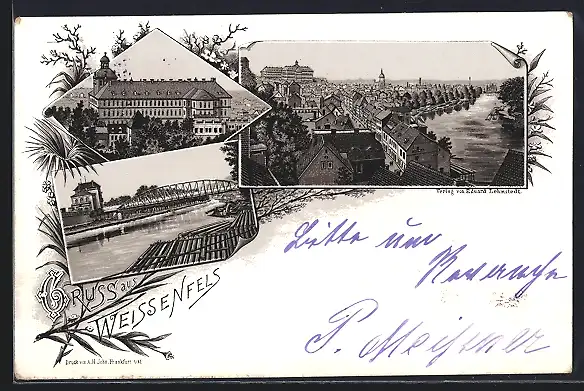 Verlag von Eduard Lehmstedt.
Bitte um
Revanche
P. Meissner
GRUSS aus
WEISSENFELS
Druck von A.H. John, Frankfurt a/M.